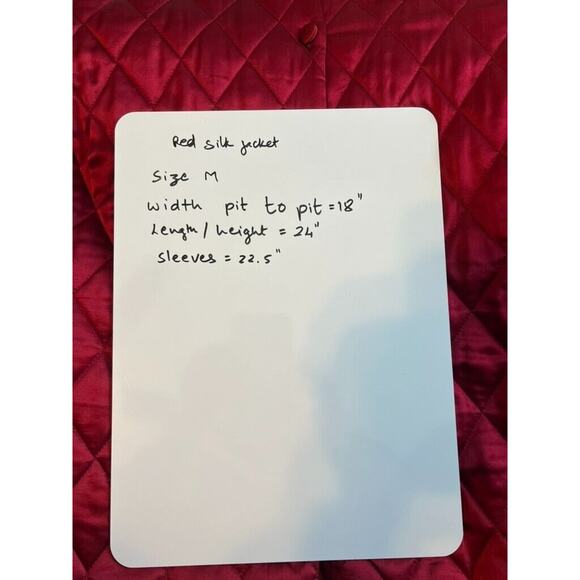 Red silk jacket
Size M
width pit to pit = 18"
Length / height = 24"
sleeves = 22.5"